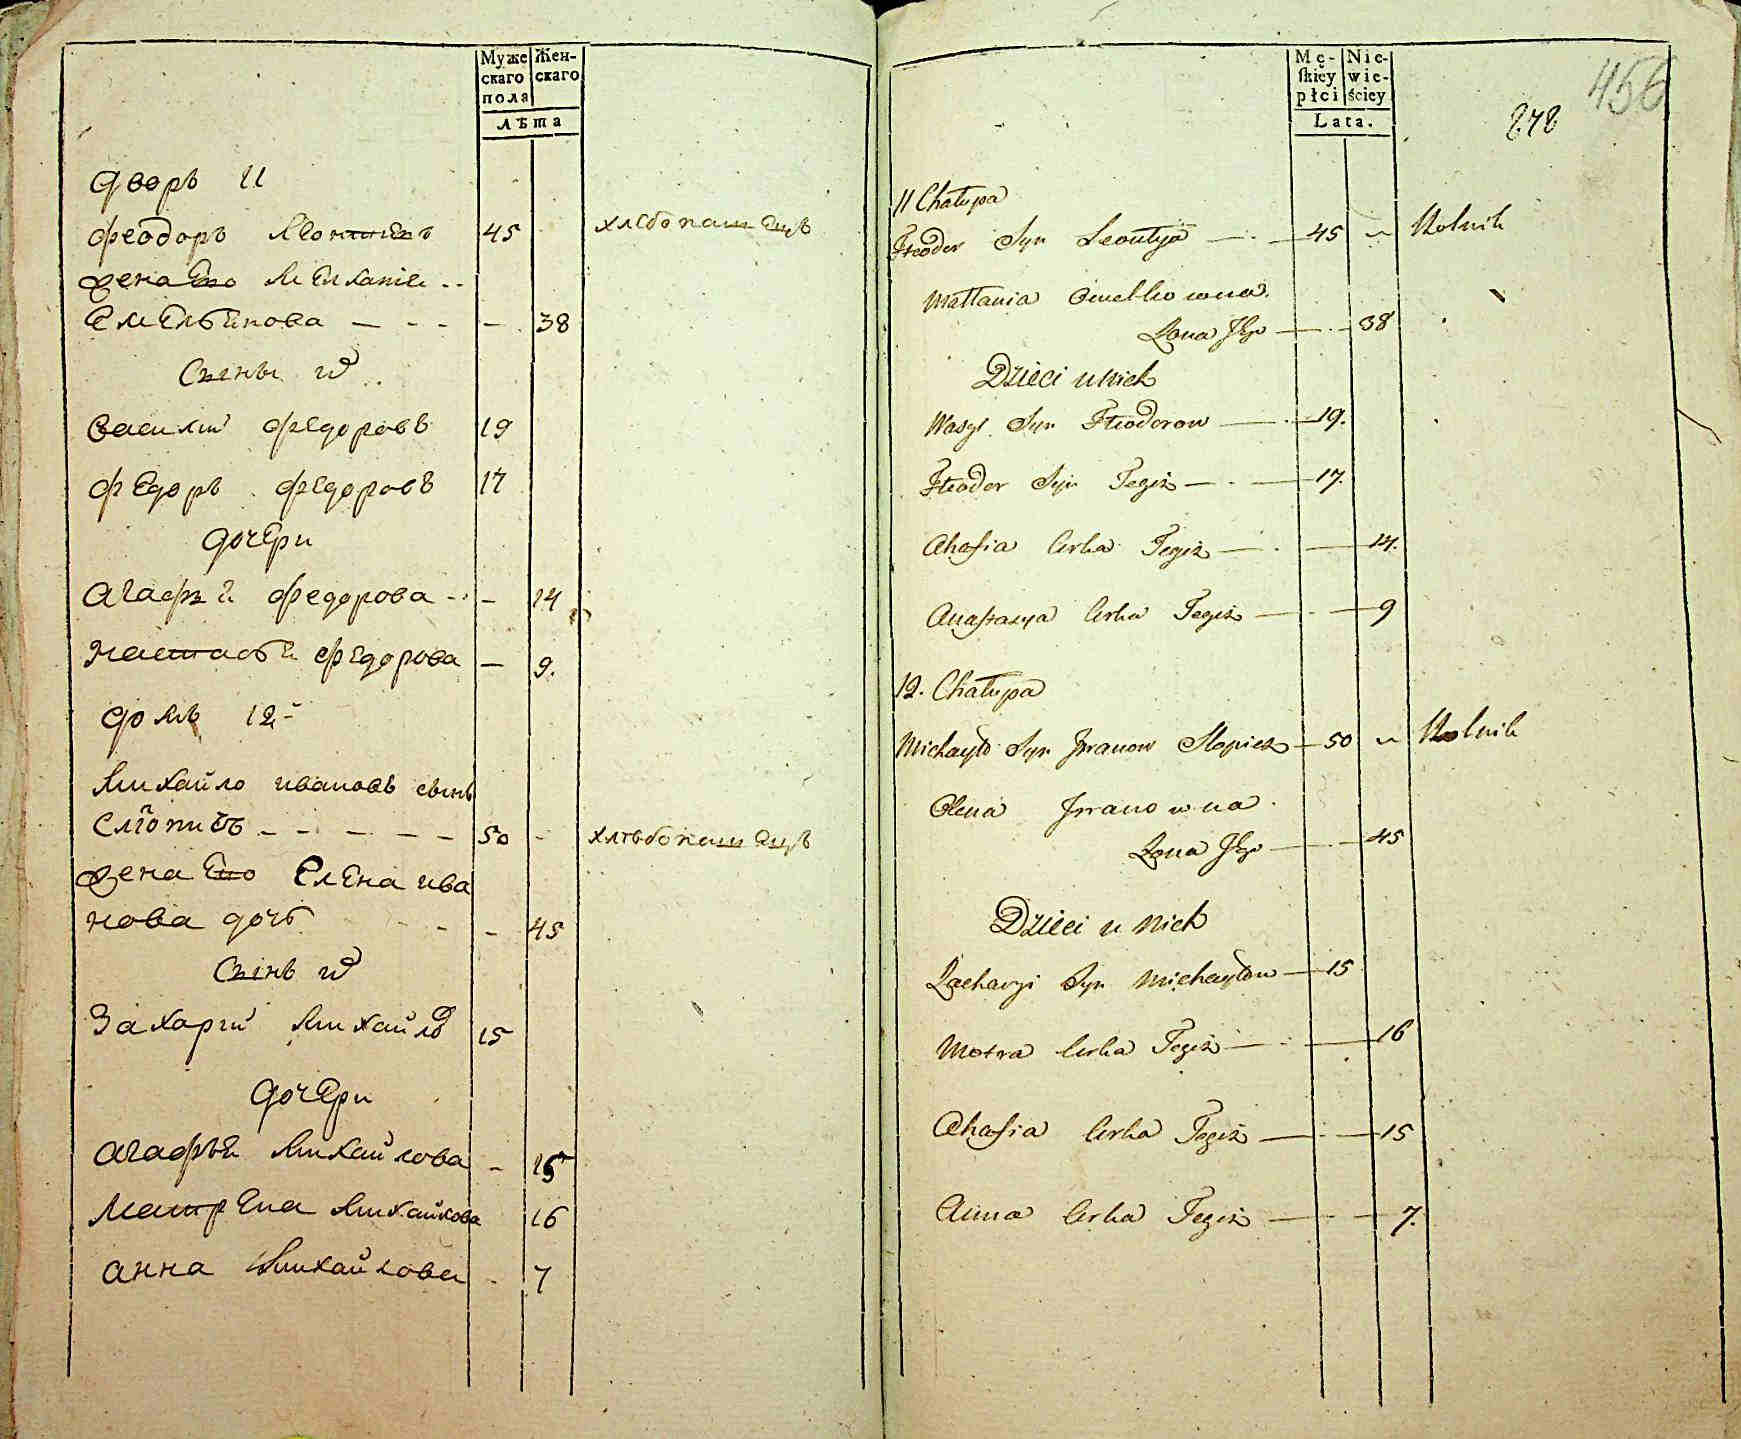 Муже
скаго
пола
Жен-
скаго
лѣта
дворъ 11
феодоръ Леонтиевъ 45 хлебопашецъ
жена Ево Мелханiе --
Емельѣнова — - - - - 38
Сыны и҆
Василий федоровъ 19
федоръ федоровъ 17
дочери
агафьѣ федорова -- - 14
Настасьѣ федорова — 9.
домъ 12-
Михайло ивановъ сынъ
- - - - - 50 - хлѣбопашецъ
жена Ево Елена ива
нова дочь - - 45
Сынъ и҆
Захарий Михайловъ 15
дочери
агафьѣ Михайлова - 15
Матрена Михайлова 16
анна Михайлова - 7
Mę-
skiey
płci
Nie-
wie-
ściey
Lata.
456
272
11 Chałupa
Fteodor Syn Leontya — - — 45 Rolnik
Mallania Omelkowna.
Zona Jego — - — 38
Dzieci u Nich
Wasyl Syn Fteodorow — - — 19.
Fteodor Syn Tegiż — - — 17.
Ahafia Corka Tegiż — - — 14.
Anastazya Corka Tegiż — - — 9
12. Chałupa
Michayło Syn Jwanow — 50 Rolnik
Olena Jwanowna.
Zona Jego — - — 45
Dzieci u Nich
Zacharyi Syn Michayłow — 15
Motra Corka Tegiż — - — 16
Ahafia Corka Tegiż — - — 15
Anna Corka Tegiż — - — 7.